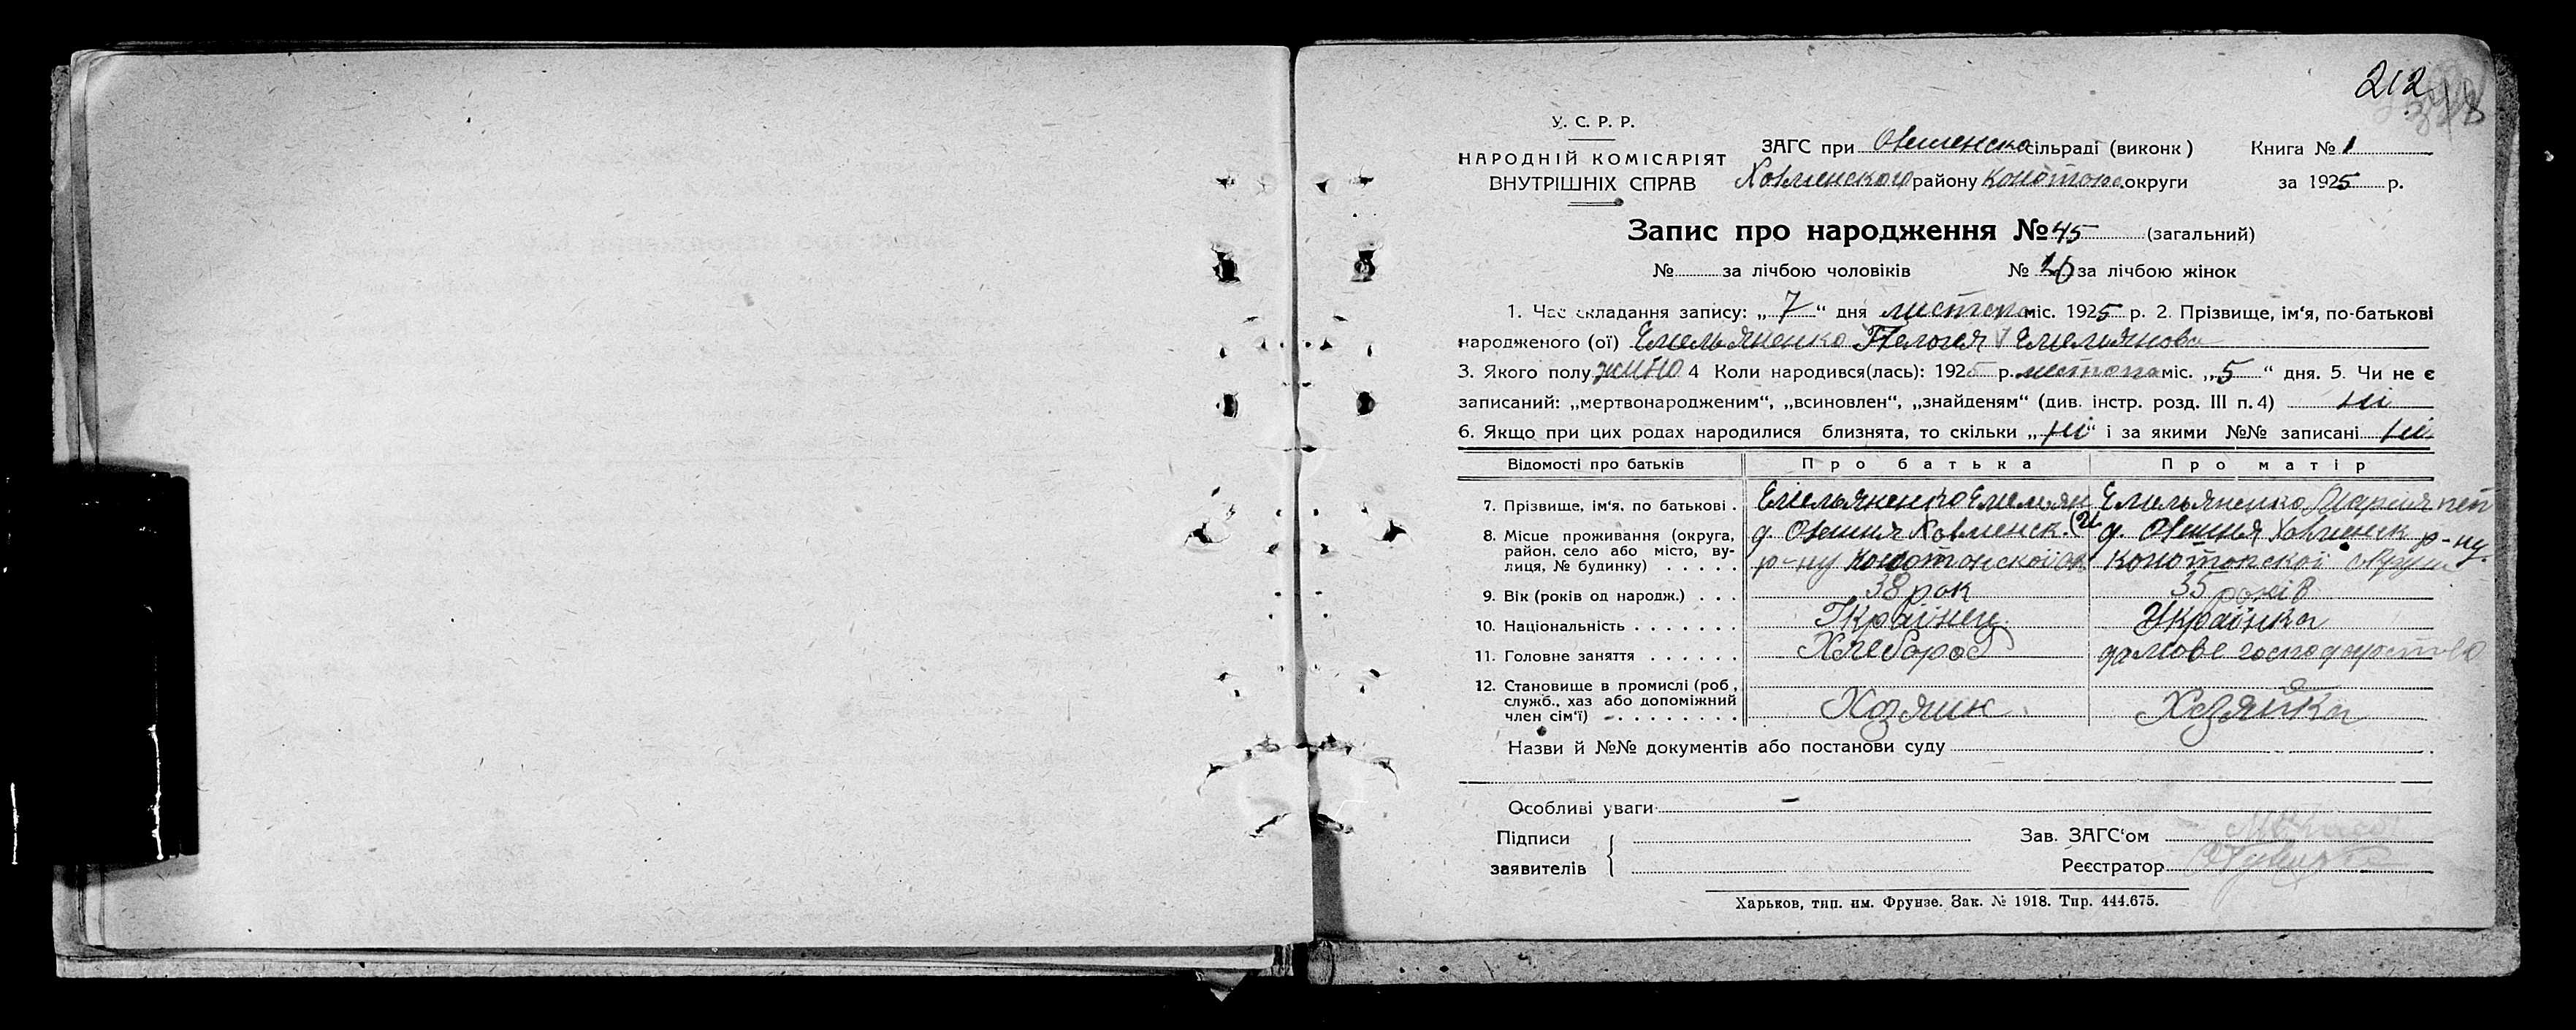 212
У. С. Р. Р.
НАРОДНІЙ КОМІСАРІЯТ
ВНУТРІШНІХ СПРАВ
ЗАГС при сільраді (виконк)
району Конотопс округи
Книга № 1
за 1925 р.
Запис про народження № 45 (загальний)
№ за лічбою чоловіків № за лічбою жінок
1. Час складання запису: „7“ дня листопа міс. 1925 р. 2. Прізвище, ім'я, по-батькові
народженого (ої) Емельяненко Пелогея Емельянова
3. Якого полу жіно 4 Коли народився(лась): 1925 р. листопа міс. „5“ дня. 5. Чи не є
записаний: „мертвонародженим“, „всиновлен“, „знайденям“ (див. інстр. розд. III п. 4) ні
6. Якщо при цих родах народилися близнята, то скільки „ні“ і за якими №№ записані ні
Відомості про батьків Про батька Про матір
7. Прізвище, ім'я, по батькові . Емельяненко Емельян Емельяненко Мария
8. Місце проживання (округа,
район, село або місто, вулиця, № будинку) . . . . .
р-ну Конотопской р-ну
Конотопской округи
9. Вік (років од народж.) . . . 38 рок 35 років
10. Національність . . . . . . . Українец Українка
11. Головне заняття . . . . . . Хлебороб домове господарство
12. Становище в промислі (роб,
служб., хаз або допоміжний
член сім'ї) . . . . . . . . Хозяин Хозяйка
Назви й №№ документів або постанови суду
Особливі уваги –
Підписи
заявителів
Зав. ЗАГС'ом
Реєстратор
Харьков, тип. им. Фрунзе. Зак. № 1918. Тир. 444.675.